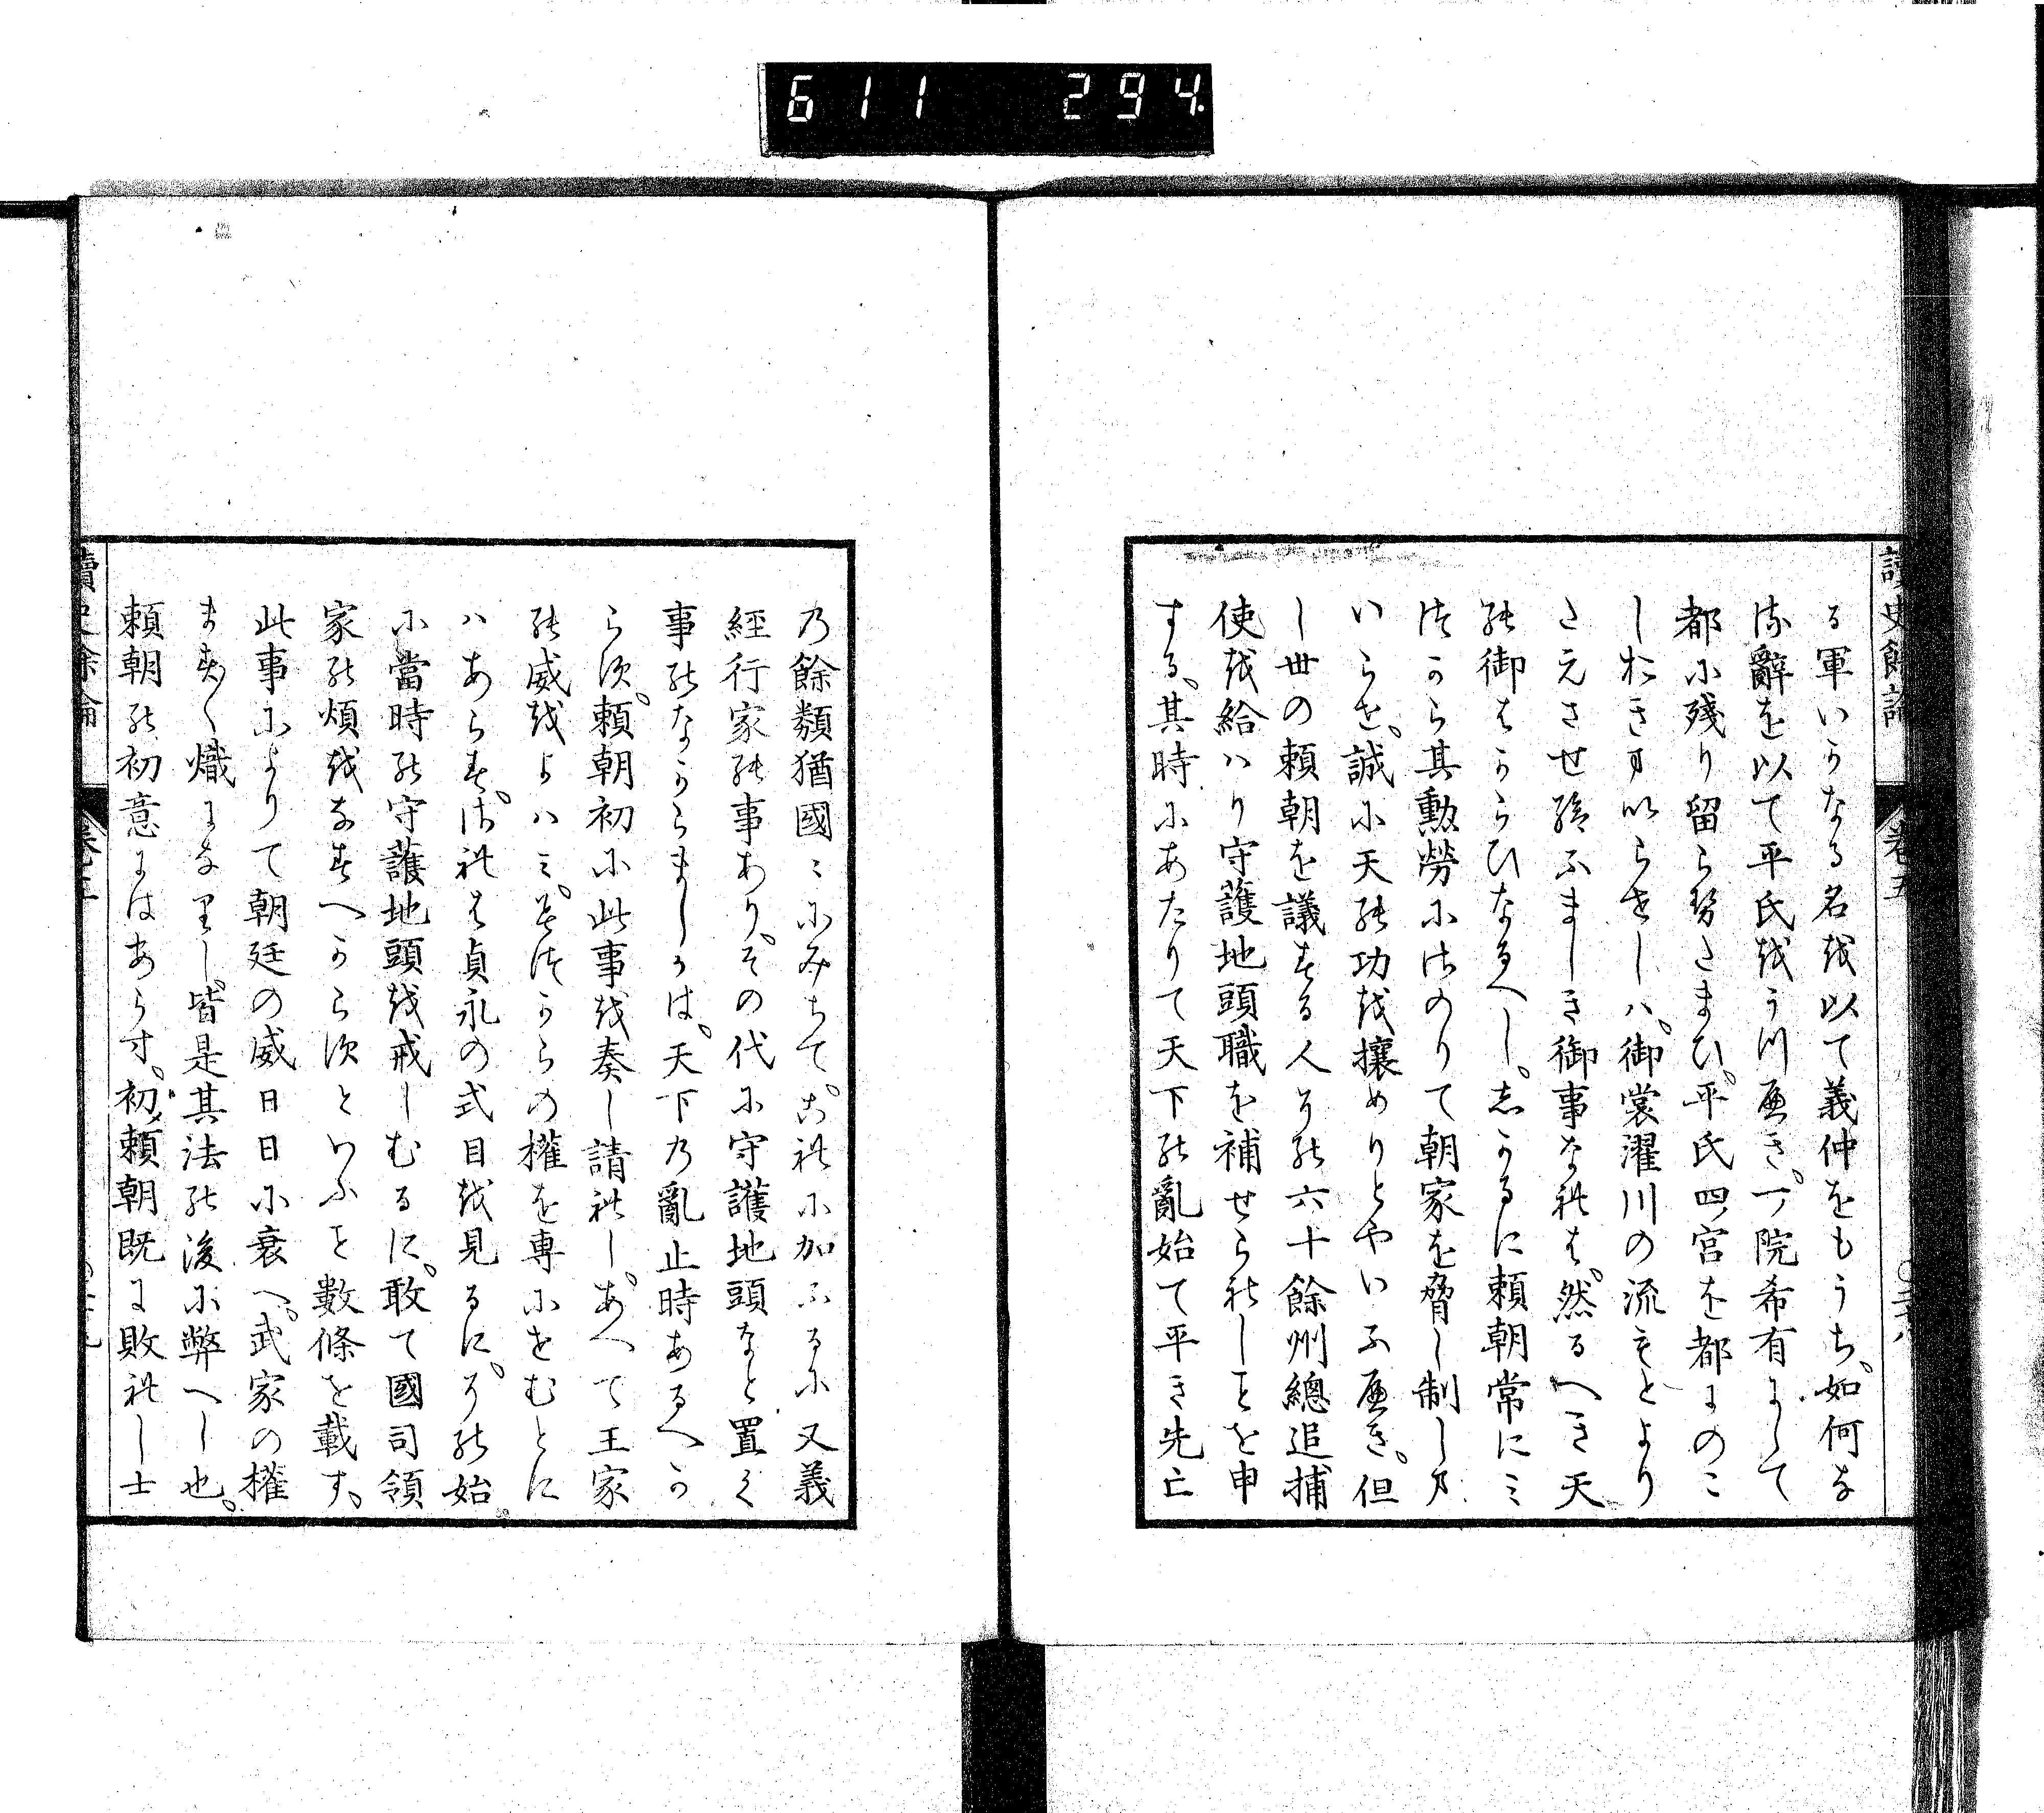 611 294
讀史餘論 巻五
る軍いかなる名を以て義仲をもうち。如何な
る辭を以て平氏をうつへき。一院希有にして
都に殘り留らせたまひ。平氏四宮を都にのこ
しおきまいらせしハ。御裳濯川の流もとより
たえさせ給ふましき御事なれは。然るへき天
の御はからひなるへし。しかるに頼朝常にミ
つから其勲勞にほのりて朝家を脅し制しま
いらせ。誠に天の功を攘めりとやいふへき。但
し世の頼朝を議する人その六十餘州總追捕
使を給ハり守護地頭職を補せられしことを申
する。其時にあたりて天下の亂始て平き先亡
乃餘類猶國ミにみちて。これに加ふるに又義
經行家の事あり。その代に守護地頭なと置く
事のなからましかは。天下乃亂止時あるへか
らす。頼朝初に此事を奏し請れし。あへて王家
の威をよハミ。みつからの權を専にせむとに
ハあらす。されは貞永の式目を見るに。その始
に當時の守護地頭を戒しむるに。敢て國司領
家の煩をなすへからすといふこと數條を載す。
此事によりて朝廷の威日日に衰へ。武家の權
ますく熾になりし。皆是其法の後に弊へし也。
頼朝の初意にはあらす。初頼朝既に敗れし士
讀史餘論 巻五